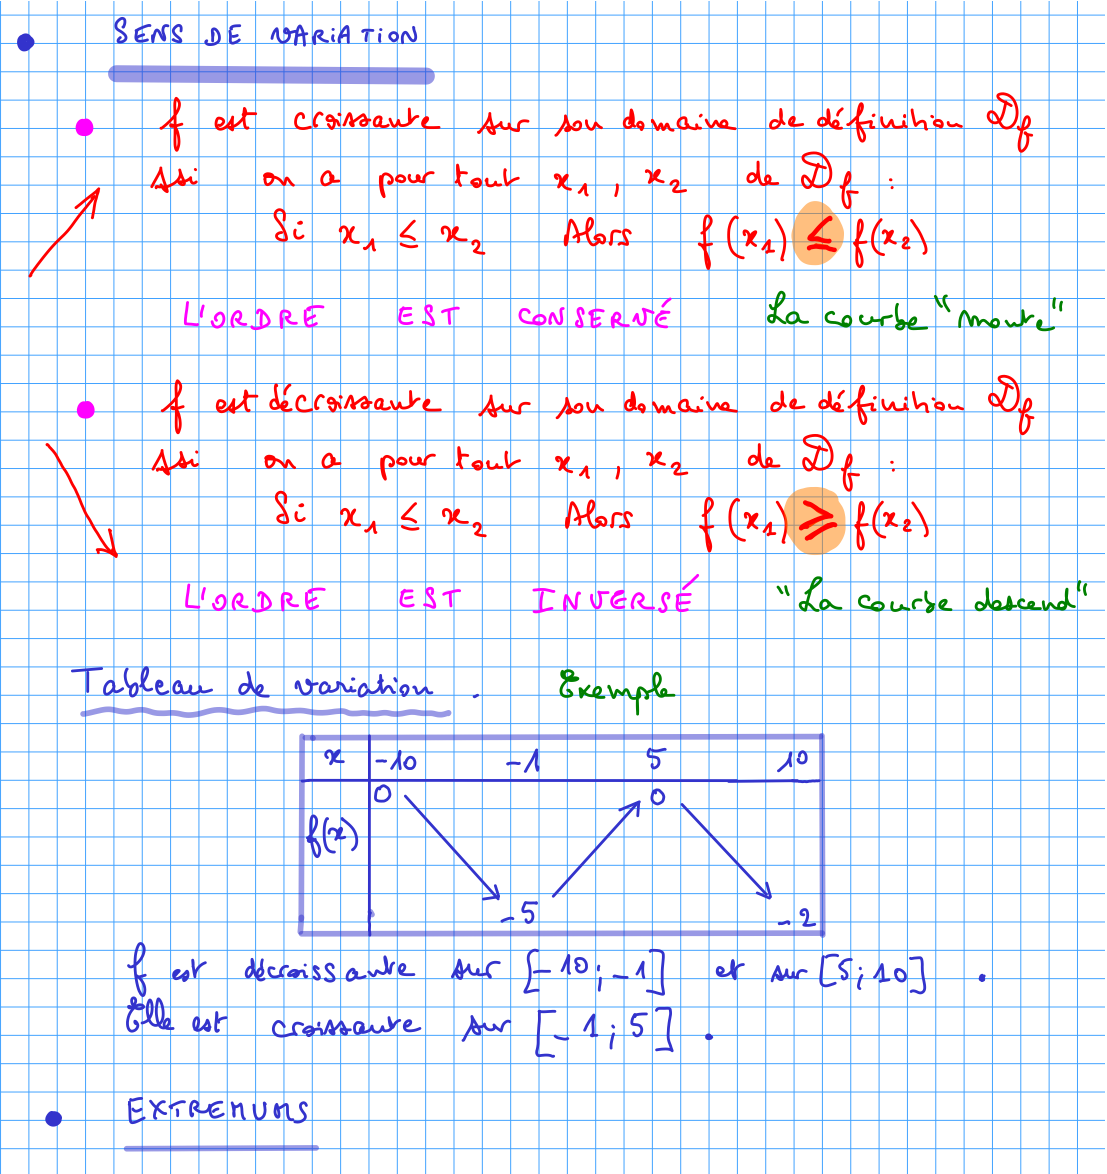 SENS DE VARIATION
f est croissante sur son domaine de définition Df
ssi on a pour tout x₁, x₂ de Df :
Si x₁ ≤ x₂ Alors f(x₁) ≤ f(x₂)
L'ORDRE EST CONSERVÉ La courbe "monte"
f est décroissante sur son domaine de définition Df
ssi on a pour tout x₁, x₂ de Df :
Si x₁ ≤ x₂ Alors f(x₁) ≥ f(x₂)
L'ORDRE EST INVERSÉ "La courbe descend"
Tableau de variation. Exemple
x -10 -1 5 10
0 0
f(x)
-5 -2
f est décroissante sur [-10; -1] et sur [5; 10].
Elle est croissante sur [-1; 5].
EXTREMUMS